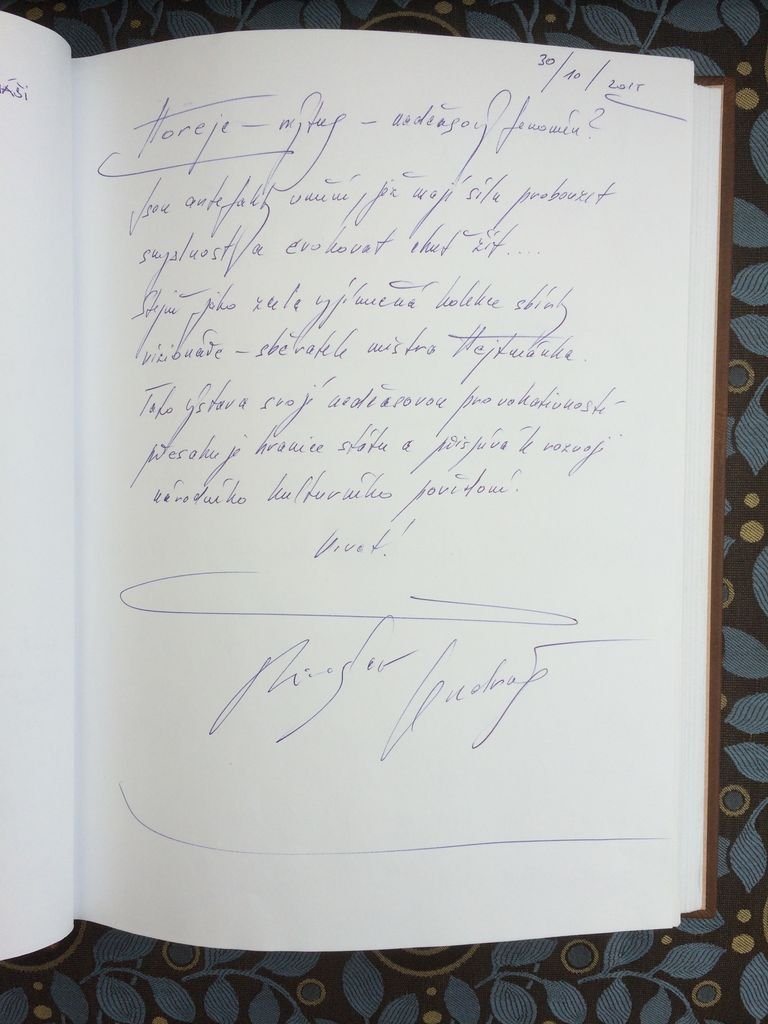 ÁŠI
30/10/2015
Horejc – mýtus – nadčasový fenomén?
Jsou artefakty umění, jež mají sílu probouzet
smyslnost a evokovat chuť žít....
Stejně jako zcela výjimečná kolekce sbírky
vizionáře – sběratele mistra Hejtmánka.
Tato výstava svojí nadčasovou provokativností
přesahuje hranice státu a přispívá k rozvoji
národního kulturního povědomí.
Vivat!
Miroslav